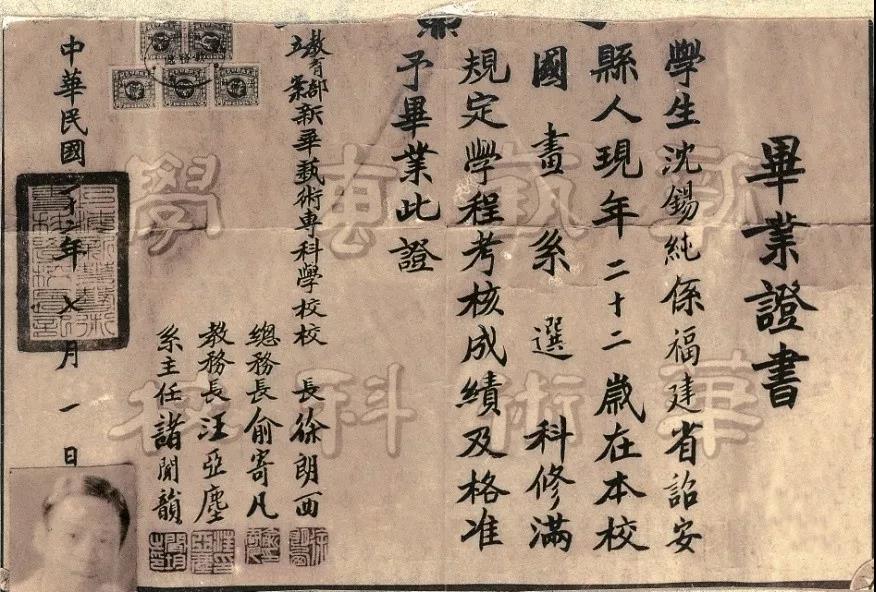 畢業證書
學生沈錫純係福建省詔安
縣人現年二十二歲在本校
國畫系選科修滿
規定學程考核成績及格准
予畢業此證
教育部
立案新華藝術專科學校校長徐朗西
總務長俞寄凡
教務長汪亞塵
系主任諸聞韻
中華民國二十三年七月一日
新華藝術專科學校